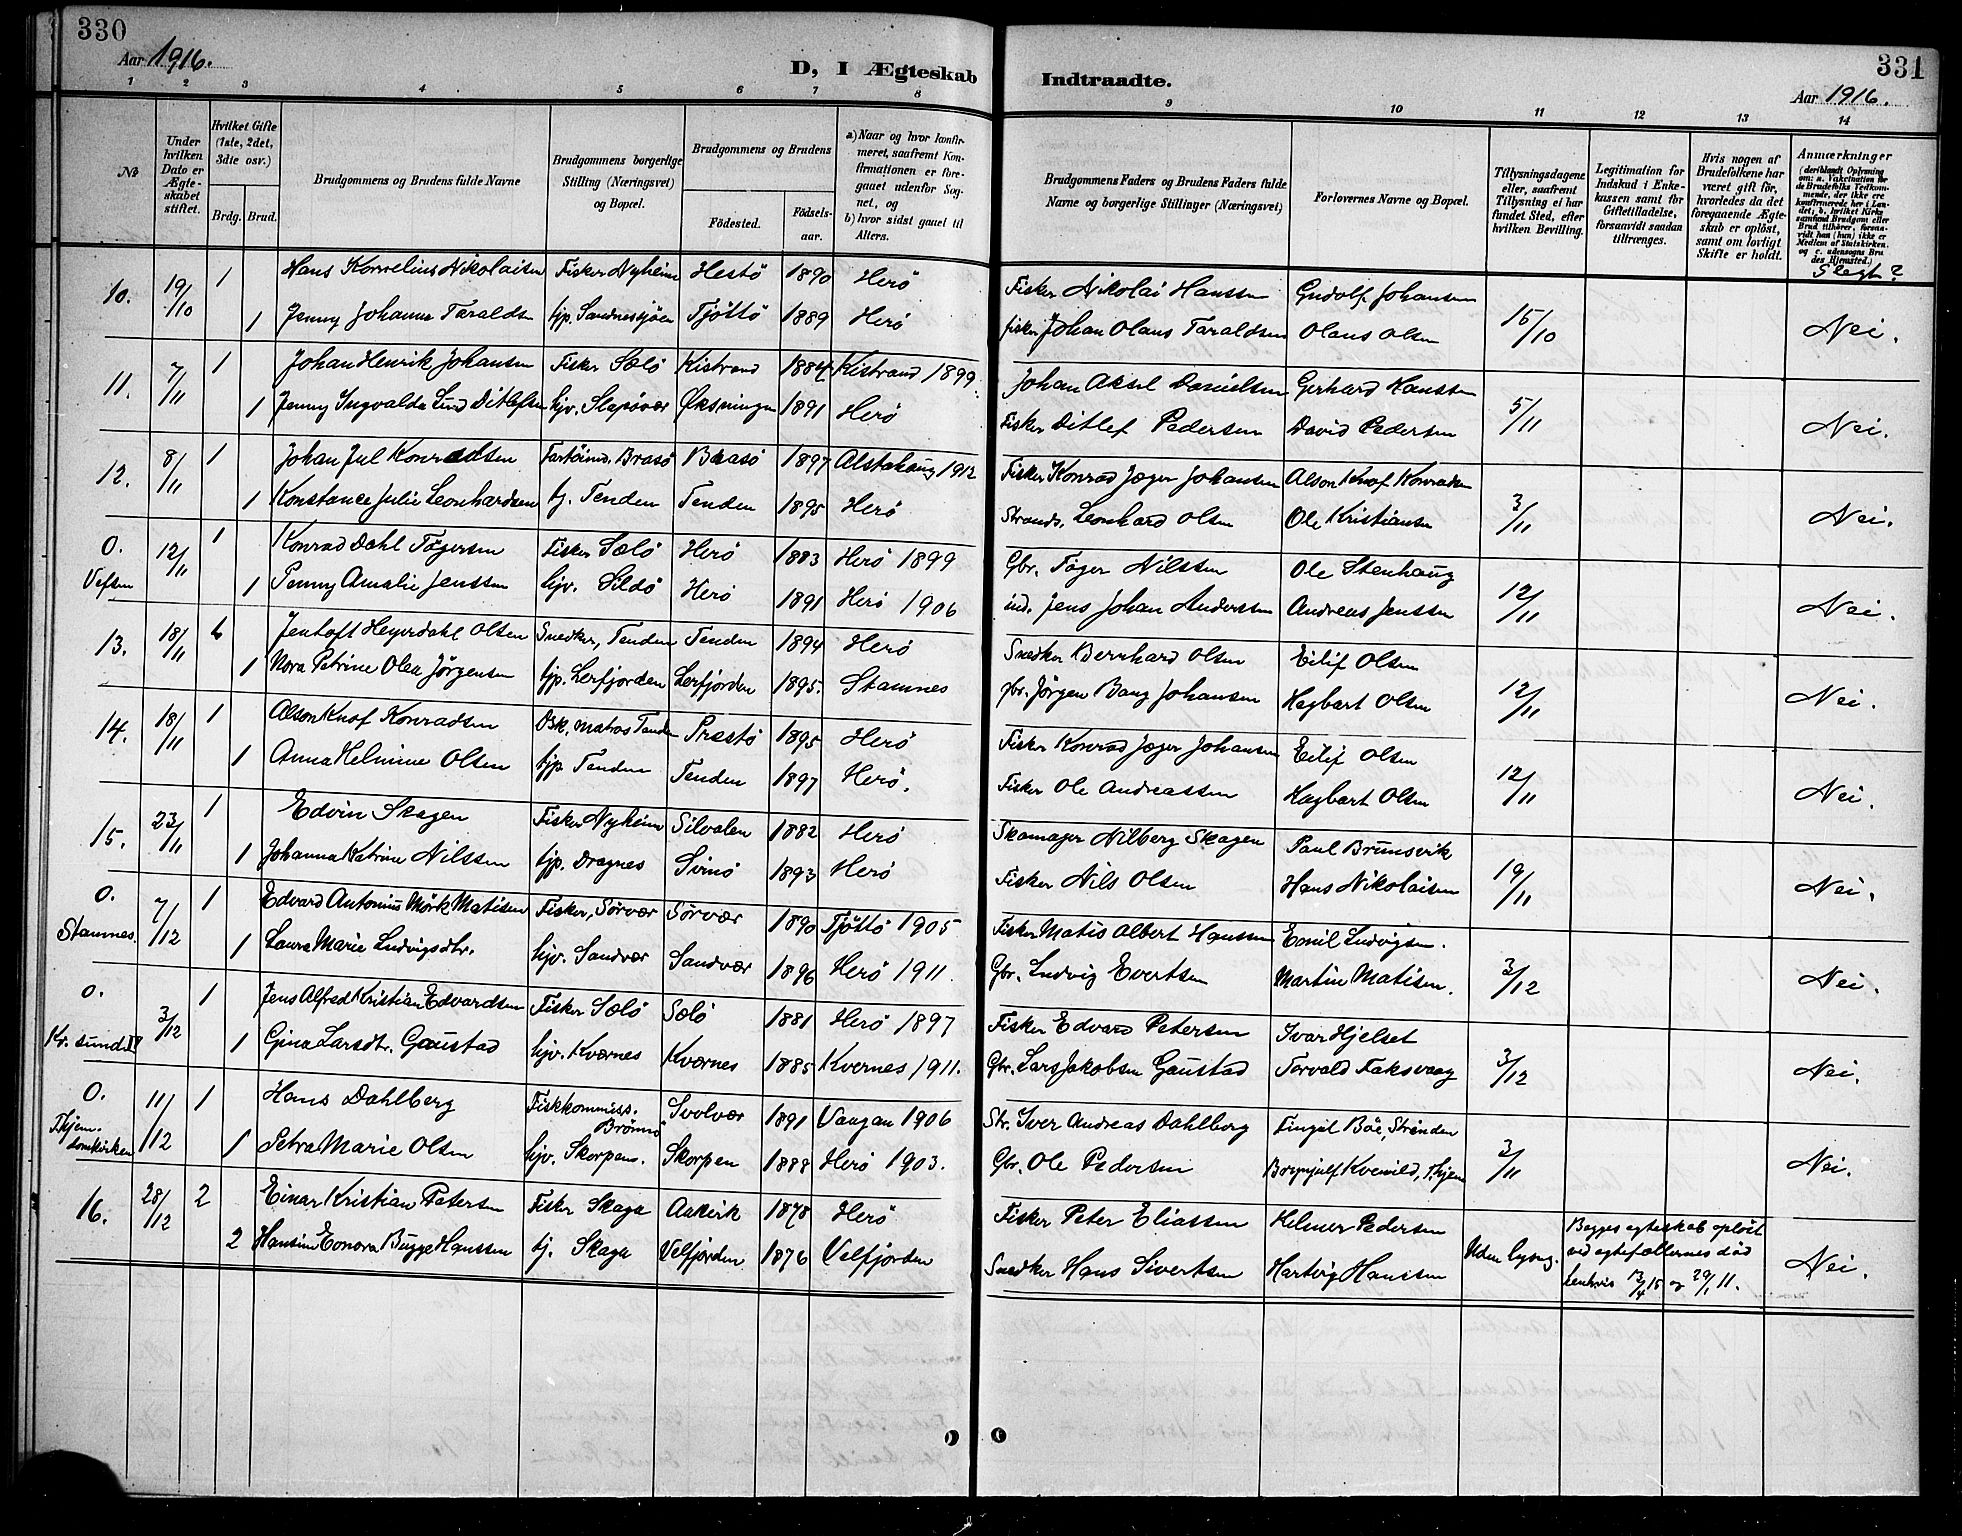 330
Aar 1916.
D, I Ægteskab Indtraadte.
331
Aar 1916.
1 2 3 4 5 6 7 8 9 10 11 12 13 14
No
Under hvilken Dato er Ægteskabet stiftet.
Hvilket Gifte (1ste, 2det, 3die osv.)
Brdg. Brud.
Brudgommens og Brudens fulde Navne
Brudgommens borgerlige Stilling (Næringsvei) og Bopæl.
Brudgommens og Brudens
Fødested. Fødselsaar.
a) Naar og hvor konfirmeret, saafremt Konfirmationen er foregaaet udenfor Sognet, og
b) hvor sidst gaaet til Alters.
Brudgommens Faders og Brudens Faders fulde Navne og borgerlige Stillinger (Næringsvei)
Forlovernes Navne og Bopæl.
Tillysningsdagene eller, saafremt Tillysning ei har fundet Sted, efter hvilken Bevilling.
Legitimation for Indskud i Enkekassen samt for Giftetilladelse, forsaavidt saadan tiltrænges.
Hvis nogen af Brudefolkene har været gift før, hvorledes da det foregaaende Ægteskab er opløst, samt om lovligt Skifte er holdt.
Anmærkninger
Slegt?
10. 19/10 1 Hans Kornelius Nikolaisen Fisker Nyheim Hestö 1890 Herö Fisker Nikolai Hanssen Gudolf Johansen 15/10 Nei.
1 Jenny Johanna Taraldsen tjp. Sandnessjöen Tjöttö 1889 Herö fisker Johan Olaus Taraldsen Olaus Olsen
11. 7/11 1 Johan Henrik Johansen Fisker Sælö Kistrand 1884 Kistrand 1899 Johan Aksel Danielsen Gerhard Hanssen 5/11 Nei.
1 Jenny Ingvalda Lund Ditlefsen hjv. Slapövær Øksningen 1891 Herö Fisker Ditlef Pedersen David Pedersen
12. 8/11 1 Johan Jul Konradsen Brasö Brasö 1897 Alstahaug 1912 Fisker Konrad Jæger Johansen Alson Knof Konradsen 3/11 Nei.
1 Konstance Julie Leonhardsen tj. Tenden Tenden 1895 Herö Strands. Leonhard Olsen Ole Kristiansen
0. Vefsen 12/11 1 Konrad Dahl Tögersen Fisker Sælö Herö 1883 Herö 1899 Gbr. Töger Nilssen Ole Stenhaug 12/11 Nei.
1 Penny Amalie Jenssen hjv. Sildö Herö 1891 Herö 1906 ind. Jens Johan Anderssen Andreas Jenssen
13. 18/11 Jentoft Heyerdahl Olsen Snedker, Tenden Tenden 1894 Herö Snedker Bernhard Olsen Eilif Olsen 12/11 Nei.
1 Nora Petrine Olea Jörgensen tjp. Lerfjorden Lerfjorden 1895. Stamnes gbr. Jörgen Bang Johansen Hagbart Olsen
14. 18/11 1 Alson Knof Konradsen Dsk. matros Tenden Prestö 1895 Herö Fisker Konrad Jæger Johansen Eilif Olsen 12/11 Nei.
1 Anna Helmine Olsen tjp Tenden Tenden 1897 Herö. Fisker Ole Andreassen Hagbart Olsen
15. 23/11 1 Edvin Skagen Fisker Nyheim Silvalen 1882 Herö Skomager Nilberg Skagen Paul Brunsvik 19/11 Nei.
1 Johanna Katrine Nilssen tjp. Dragnes Svinö 1893 Herö Fisker Nils Olsen Hans Nikolaisen
0. Stamnes. 7/12 1 Edvard Antonius Mörk Matisen Fisker, Sörvær Sörvær 1890 Tjöttö 1905 Fisker Matis Albert Hanssen Emil Ludvigsen. 3/12 Nei.
1 Laura Marie Ludvigsdtr. hjv. Sandvær Sandvær 1896 Herö 1911. Gbr. Ludvig Evertsen Martin Matisen.
0. Kr. sund. 3/12 1 Jens Alfred Kristian Edvardsen Fisker Sælö Sælö 1881 Herö 1897 Fisker Edvard Petersen Ivar Hjelset 3/12 Nei.
1 Gina Larsdtr. Gaustad hjv. Kværnes Kværnes 1885 Kvernes 1911. Gbr. Lars Jakobsen Gaustad Torvald Faksvaag
0. Thjem. domkirken 11/12 1 Hans Dahlberg Fiskkommiss. Brönnö Svolvær 1891 Vaagan 1906 Str. Iver Andreas Dahlberg Fingal Böe, Strinden 3/11 Nei.
1 Petra Marie Olsen hjv. Skorpen. Skorpen 1888 Herö 1903. Gbr. Ole Pedersen Kvenild, T.hjem
16. 28/12 2 Einar Kristian Petersen Fisker Skaga Aakvik 1878 Herö Fisker Peter Eliassen Helmer Pedersen Uden lysng. Begges egteskab oplöst ved egtefællernes död henhvis 13/4 15 og 29/1 11. Nei.
2 Hansine Eonora Bugge Hanssen tj. Skaga Velfjorden 1876 Velfjorden Snedker Hans Sivertsen Hartvig Hanssen